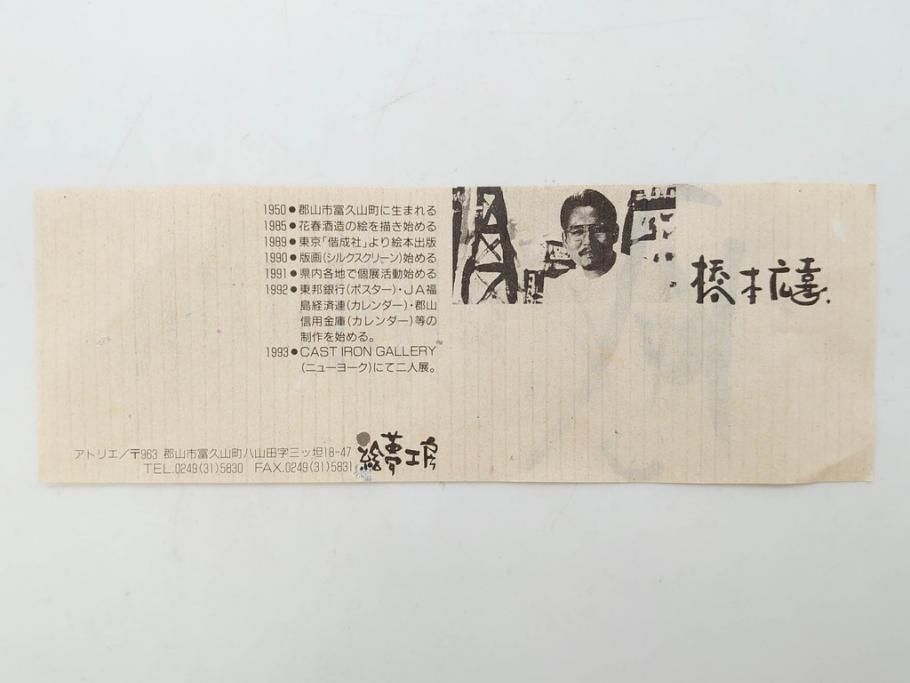 1950●郡山市富久山町に生まれる
1985●花春酒造の絵を描き始める
1989●東京「偕成社」より絵本出版
1990●版画(シルクスクリーン)始める
1991●県内各地で個展活動始める
1992●東邦銀行(ポスター)・JA福
島経済連(カレンダー)・郡山
信用金庫(カレンダー)等の
制作を始める。
1993●CAST IRON GALLERY
(ニューヨーク)にて二人展。
橋本広喜
アトリエ/〒963 郡山市富久山町八山田字三ッ坦18-47
TEL.0249(31)5830 FAX.0249(31)5831
絵夢工房